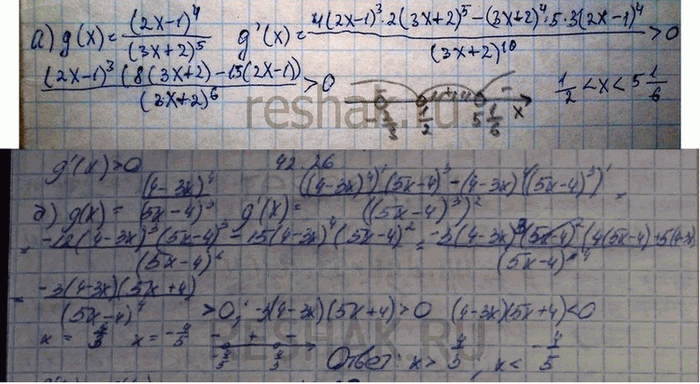 а) g(x) = (2x-1)^4 / (3x+2)^5   g'(x) = 4(2x-1)^3·2(3x+2)^5-(3x+2)^4·5·3(2x-1)^4 / (3x+2)^10 >0
(2x-1)^3(8(3x+2)-15(2x-1)) / (3x+2)^6 >0   -2/3   1/2   5 1/6   x   1/2<x<5 1/6
reshak.ru
g'(x)>0   42.26
д) g(x) = (4-3x)^4 / (5x-4)^3   g'(x) = ((4-3x)^4)'(5x-4)^3-(4-3x)^4((5x-4)^3)' / ((5x-4)^3)^2 =
= -12(4-3x)^3(5x-4)^3-15(4-3x)^4(5x-4)^2 / (5x-4)^6 = -3(4-3x)^3(5x-4)^2(4(5x-4)+5(4-3x)) / (5x-4)^6
= -3(4-3x)(5x+4) / (5x-4)^4 >0; -3(4-3x)(5x+4)>0   (4-3x)(5x+4)<0
RESHAK.RU
x = 4/3   x = -4/5   - + -   -4/5   4/3   Ответ: x> 4/5; x< -4/5